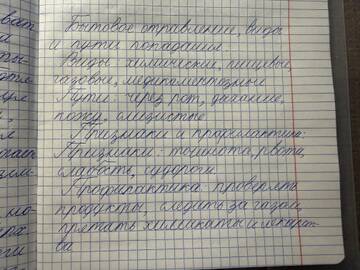 Бытовое отравление, виды
и пути попадании.
Виды: химические, пищевые,
газовые, медикаментозные
Пути: через рот, дыхание,
кожу, слизистые
Признаки и профилактика:
Признаки - тошнота, рвота,
слабость, судороги.
Профилактика: проверять
продукты, следить за газом,
прятать химикаты и лекарст-
ва